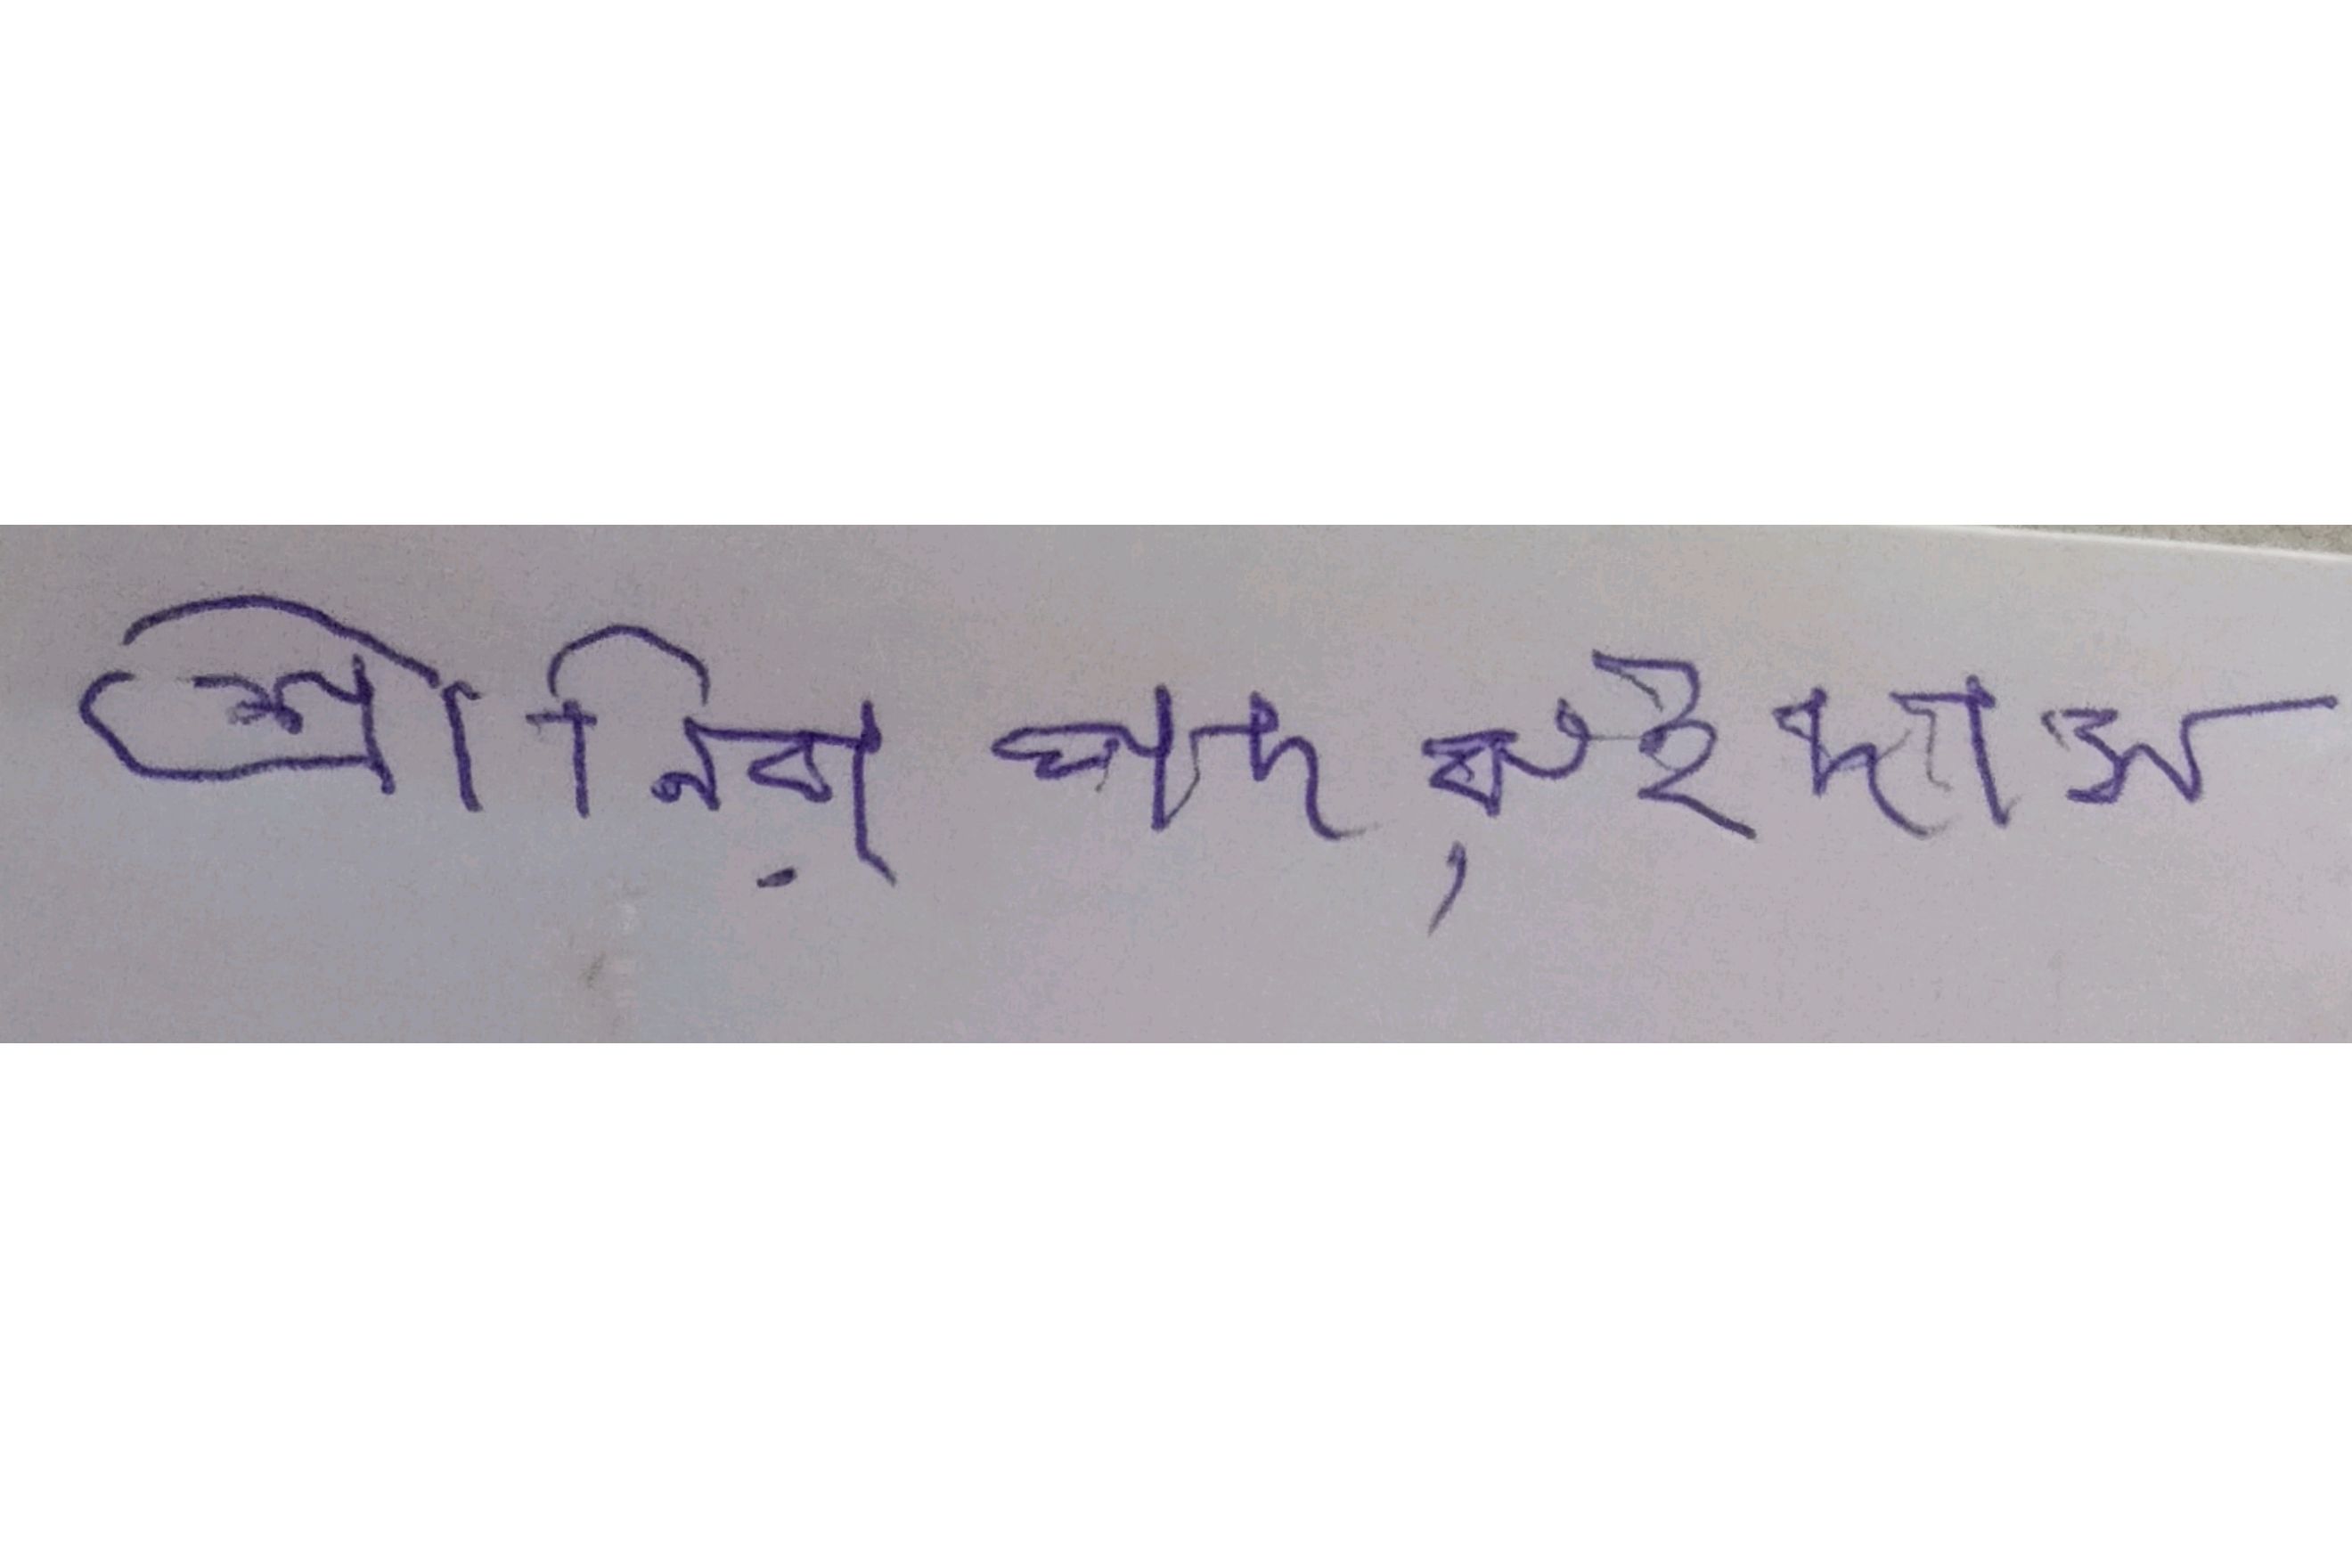 শ্রী নিরাপদ রুইদাস